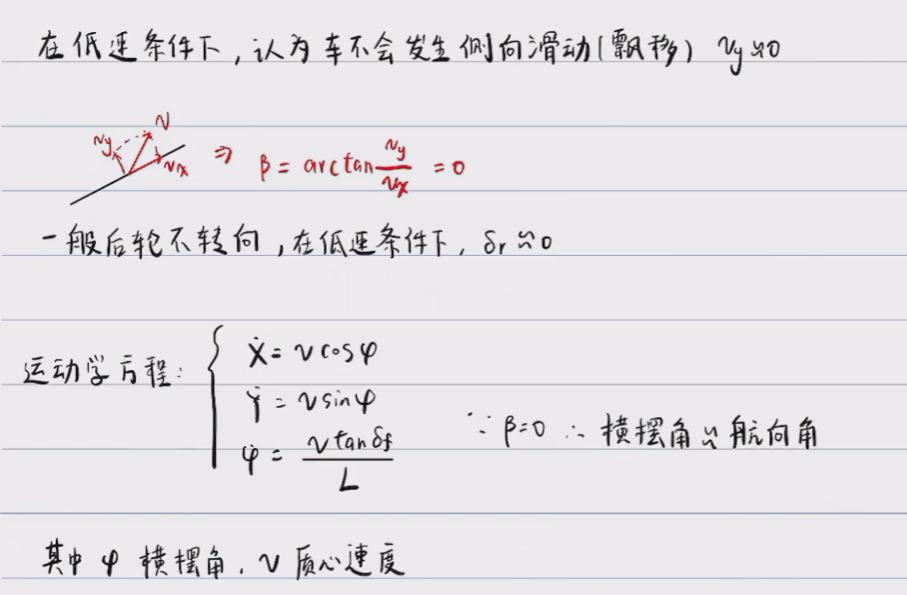 在低速条件下,认为车不会发生侧向滑动(飘移) vy≈0
vy v vx ⇒ β = arctan vy/vx = 0
一般后轮不转向,在低速条件下, δr≈0
运动学方程: { Ẋ = v cosφ
Ẏ = v sinφ
φ̇ = v tanδf / L ∵ β=0 ∴ 横摆角≈航向角
其中 φ 横摆角, v 质心速度